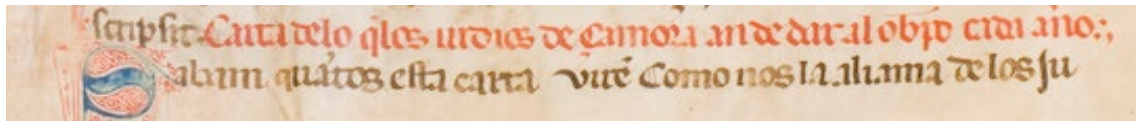 scripsit. Carta delo q̃los iudios de çamora an de dar al obp̃o cada año:,
Sabam quãtos esta carta virẽ Como nos la aliama de los ju